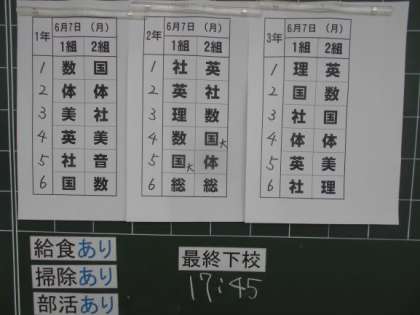 1年 6月7日 (月)
1組 2組
1 数 国
2 体 体
3 美 社
4 英 美
5 社 音
6 国 数
2年 6月7日 (月)
1組 2組
1 社 英
2 英 社
3 理 数
4 数 国大
5 国大 体
6 総 総
3年 6月7日 (月)
1組 2組
1 理 英
2 国 数
3 社 国
4 体 体
5 英 美
6 社 理
給食あり
掃除あり
部活あり
最終下校
17:45